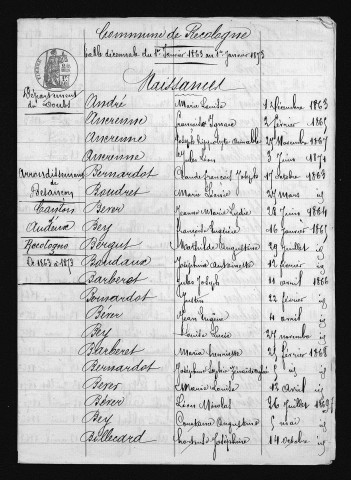 Commune de Recologne
Table décennale du 1er Janvier 1863 au 1er Janvier 1873
Naissances
Département
du Doubs
Arrondissement
de
Besançon
Canton
Audeux
Recologne
De 1863 à 1873
André Marie Louise 1 Décembre 1863
Ancrenne Ignace 2 février 1865
Ancrenne Joseph hippolyte aimable 25 Novembre 1867
Ancrenne Jules Léon 3 Juin 1871
Bernardot Claude françois Joseph 17 octobre 1863
Boudret Marie 27 mars id
Bever Jeanne Marie Lydie 20 Juin 1864
Bey françois 16 Janvier 1865
Bergut Mathilde Augustine 29 Juillet id
Baudaux Joséphine Antoinette 12 février id
Barberot Jules Joseph 11 avril 1866
Ponsardot Justin 22 février id
Bever Jean Eugène 4 avril id
Bey Louise Lucie 27 novembre id
Barberot Marie henriette 25 février 1868
Bernardot Joséphine 5 id
Bever Marie Louise 12 Avril id
Bever Léon Nicolas 26 Juillet 1869
Bey Constance Augustine 5 mai id
Billecard hortense Joséphine 14 octobre id